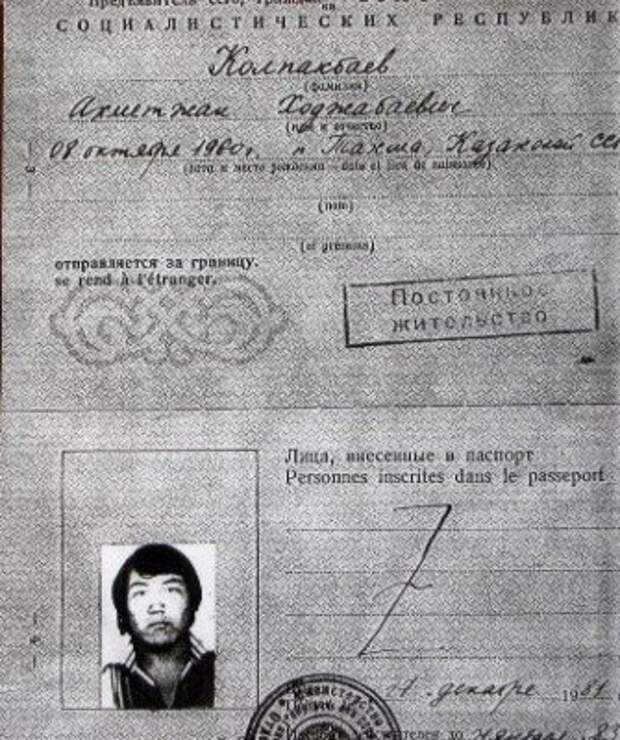 Предъявитель сего, гражданин
СОЦИАЛИСТИЧЕСКИХ РЕСПУБЛИК
Колпакбаев
(фамилия)
Ахметжан Ходжабаевич
(имя и отчество)
08 октября 1960г. Казахской ССР
(дата и место рождения - date et lieu de naissance)
(nom)
(et prénoms)
отправляется за границу.
se rend à l'étranger.
Постоянное
жительство
Лица, внесенные в паспорт
Personnes inscrites dans le passeport
декабря 1981